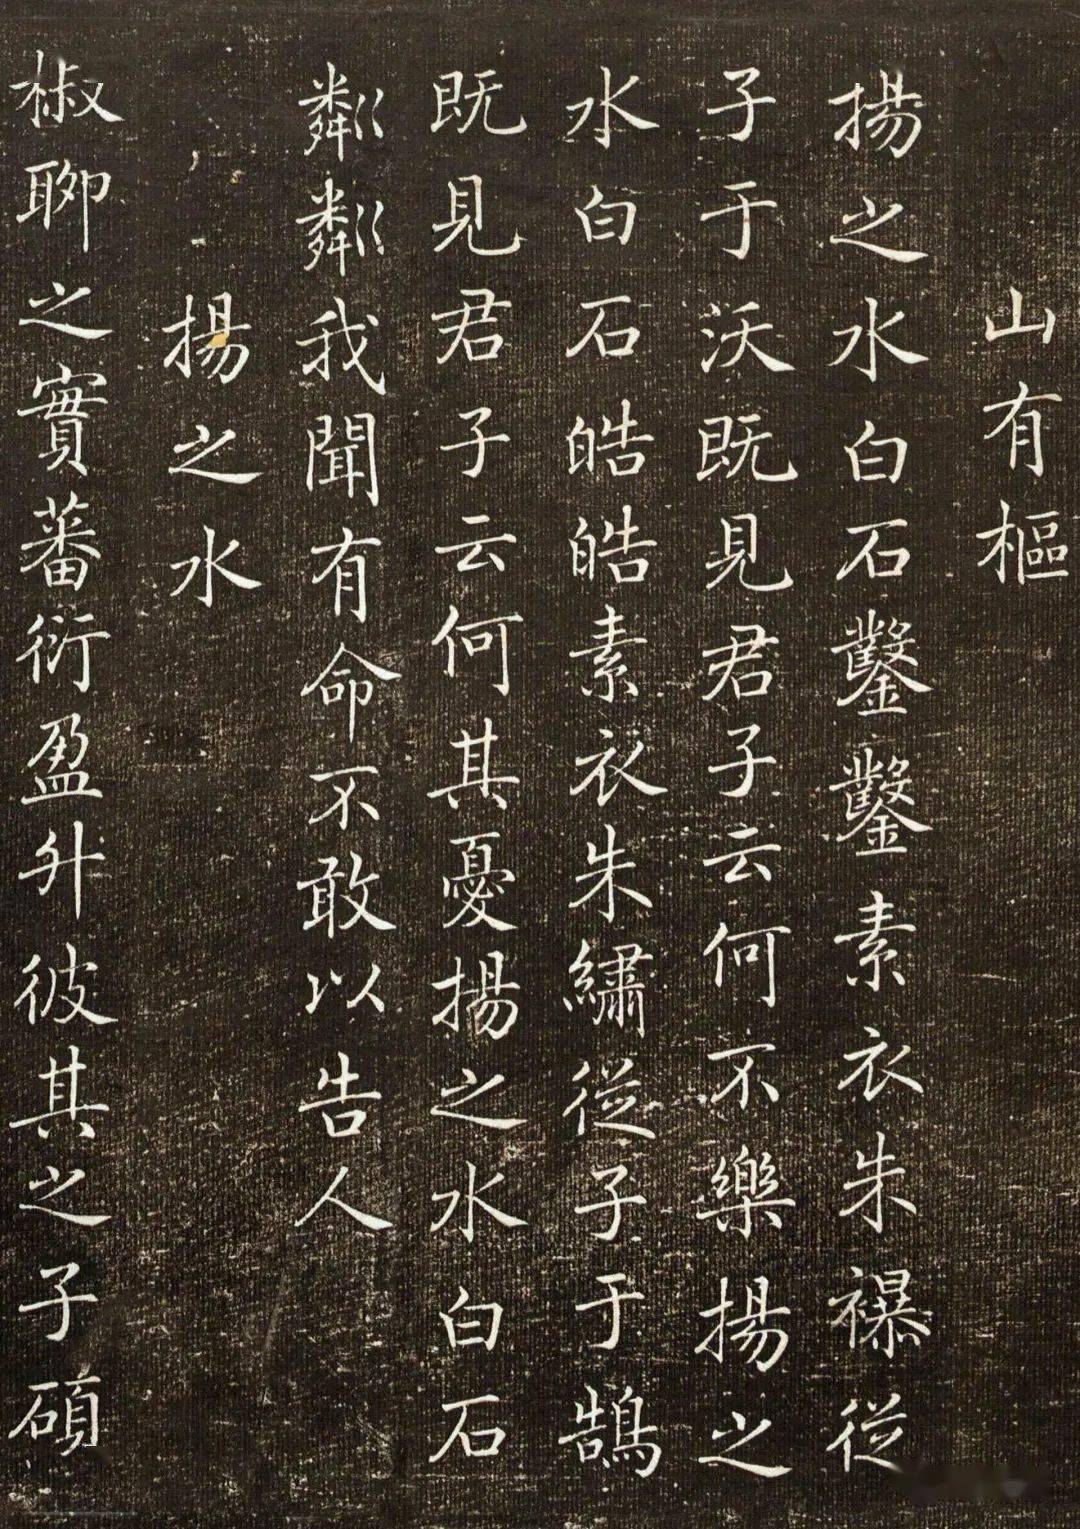 山有樞
揚之水白石鑿鑿素衣朱襮從
子于沃既見君子云何不樂揚之
水白石皓皓素衣朱繡從子于鵠
既見君子云何其憂揚之水白石
粼粼我聞有命不敢以告人
揚之水
椒聊之實蕃衍盈升彼其之子碩